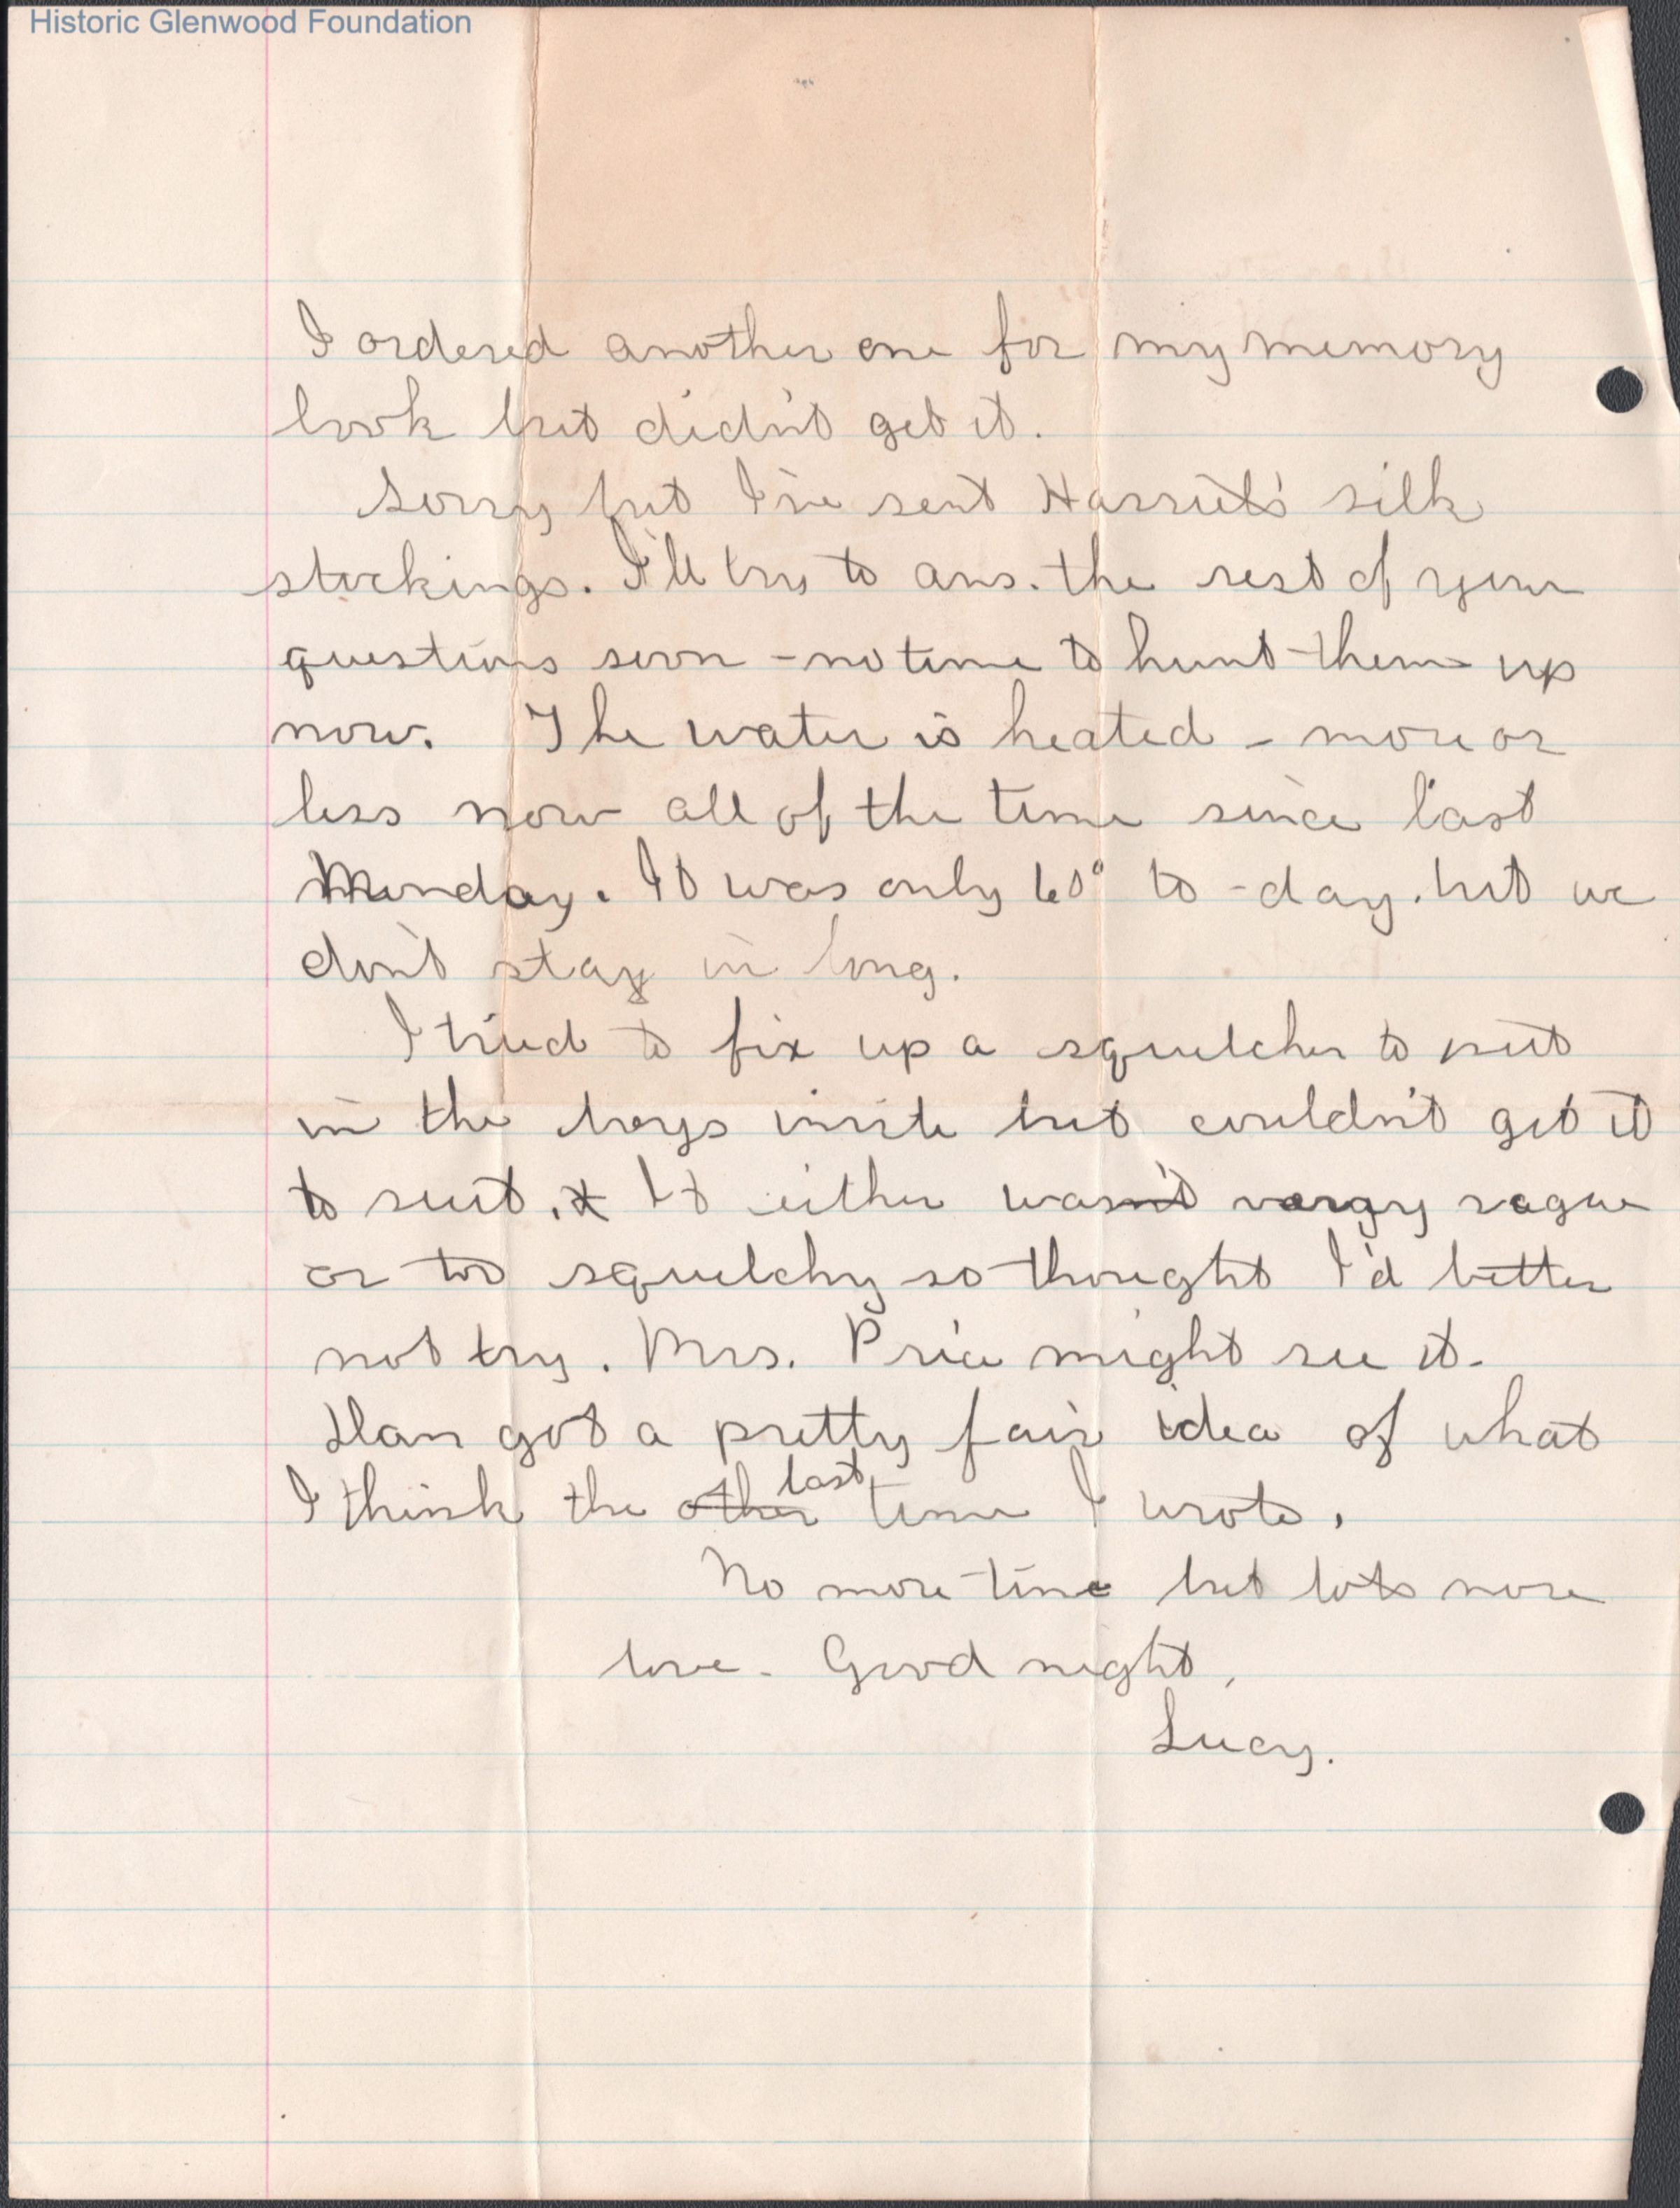 Historic Glenwood Foundation
I ordered another one for my memory
book but didn't get it.
Sorry but I've sent Harriet's silk
stockings. I'll try to ans. the rest of your
questions soon - no time to hunt them up
now. The water is heated - more or
less now all of the time since last
Monday. It was only 60° to-day. but we
don't stay in long.
I tried to fix up a squelcher to put
in the boys invite but couldn't get it
to suit. It either was vague
or too squelchy so thought I'd better
not try. Mrs. Price might see it.
Dan got a pretty fair idea of what
I think the other last time I wrote.
No more time but lots more
love. Good night,
Lucy.